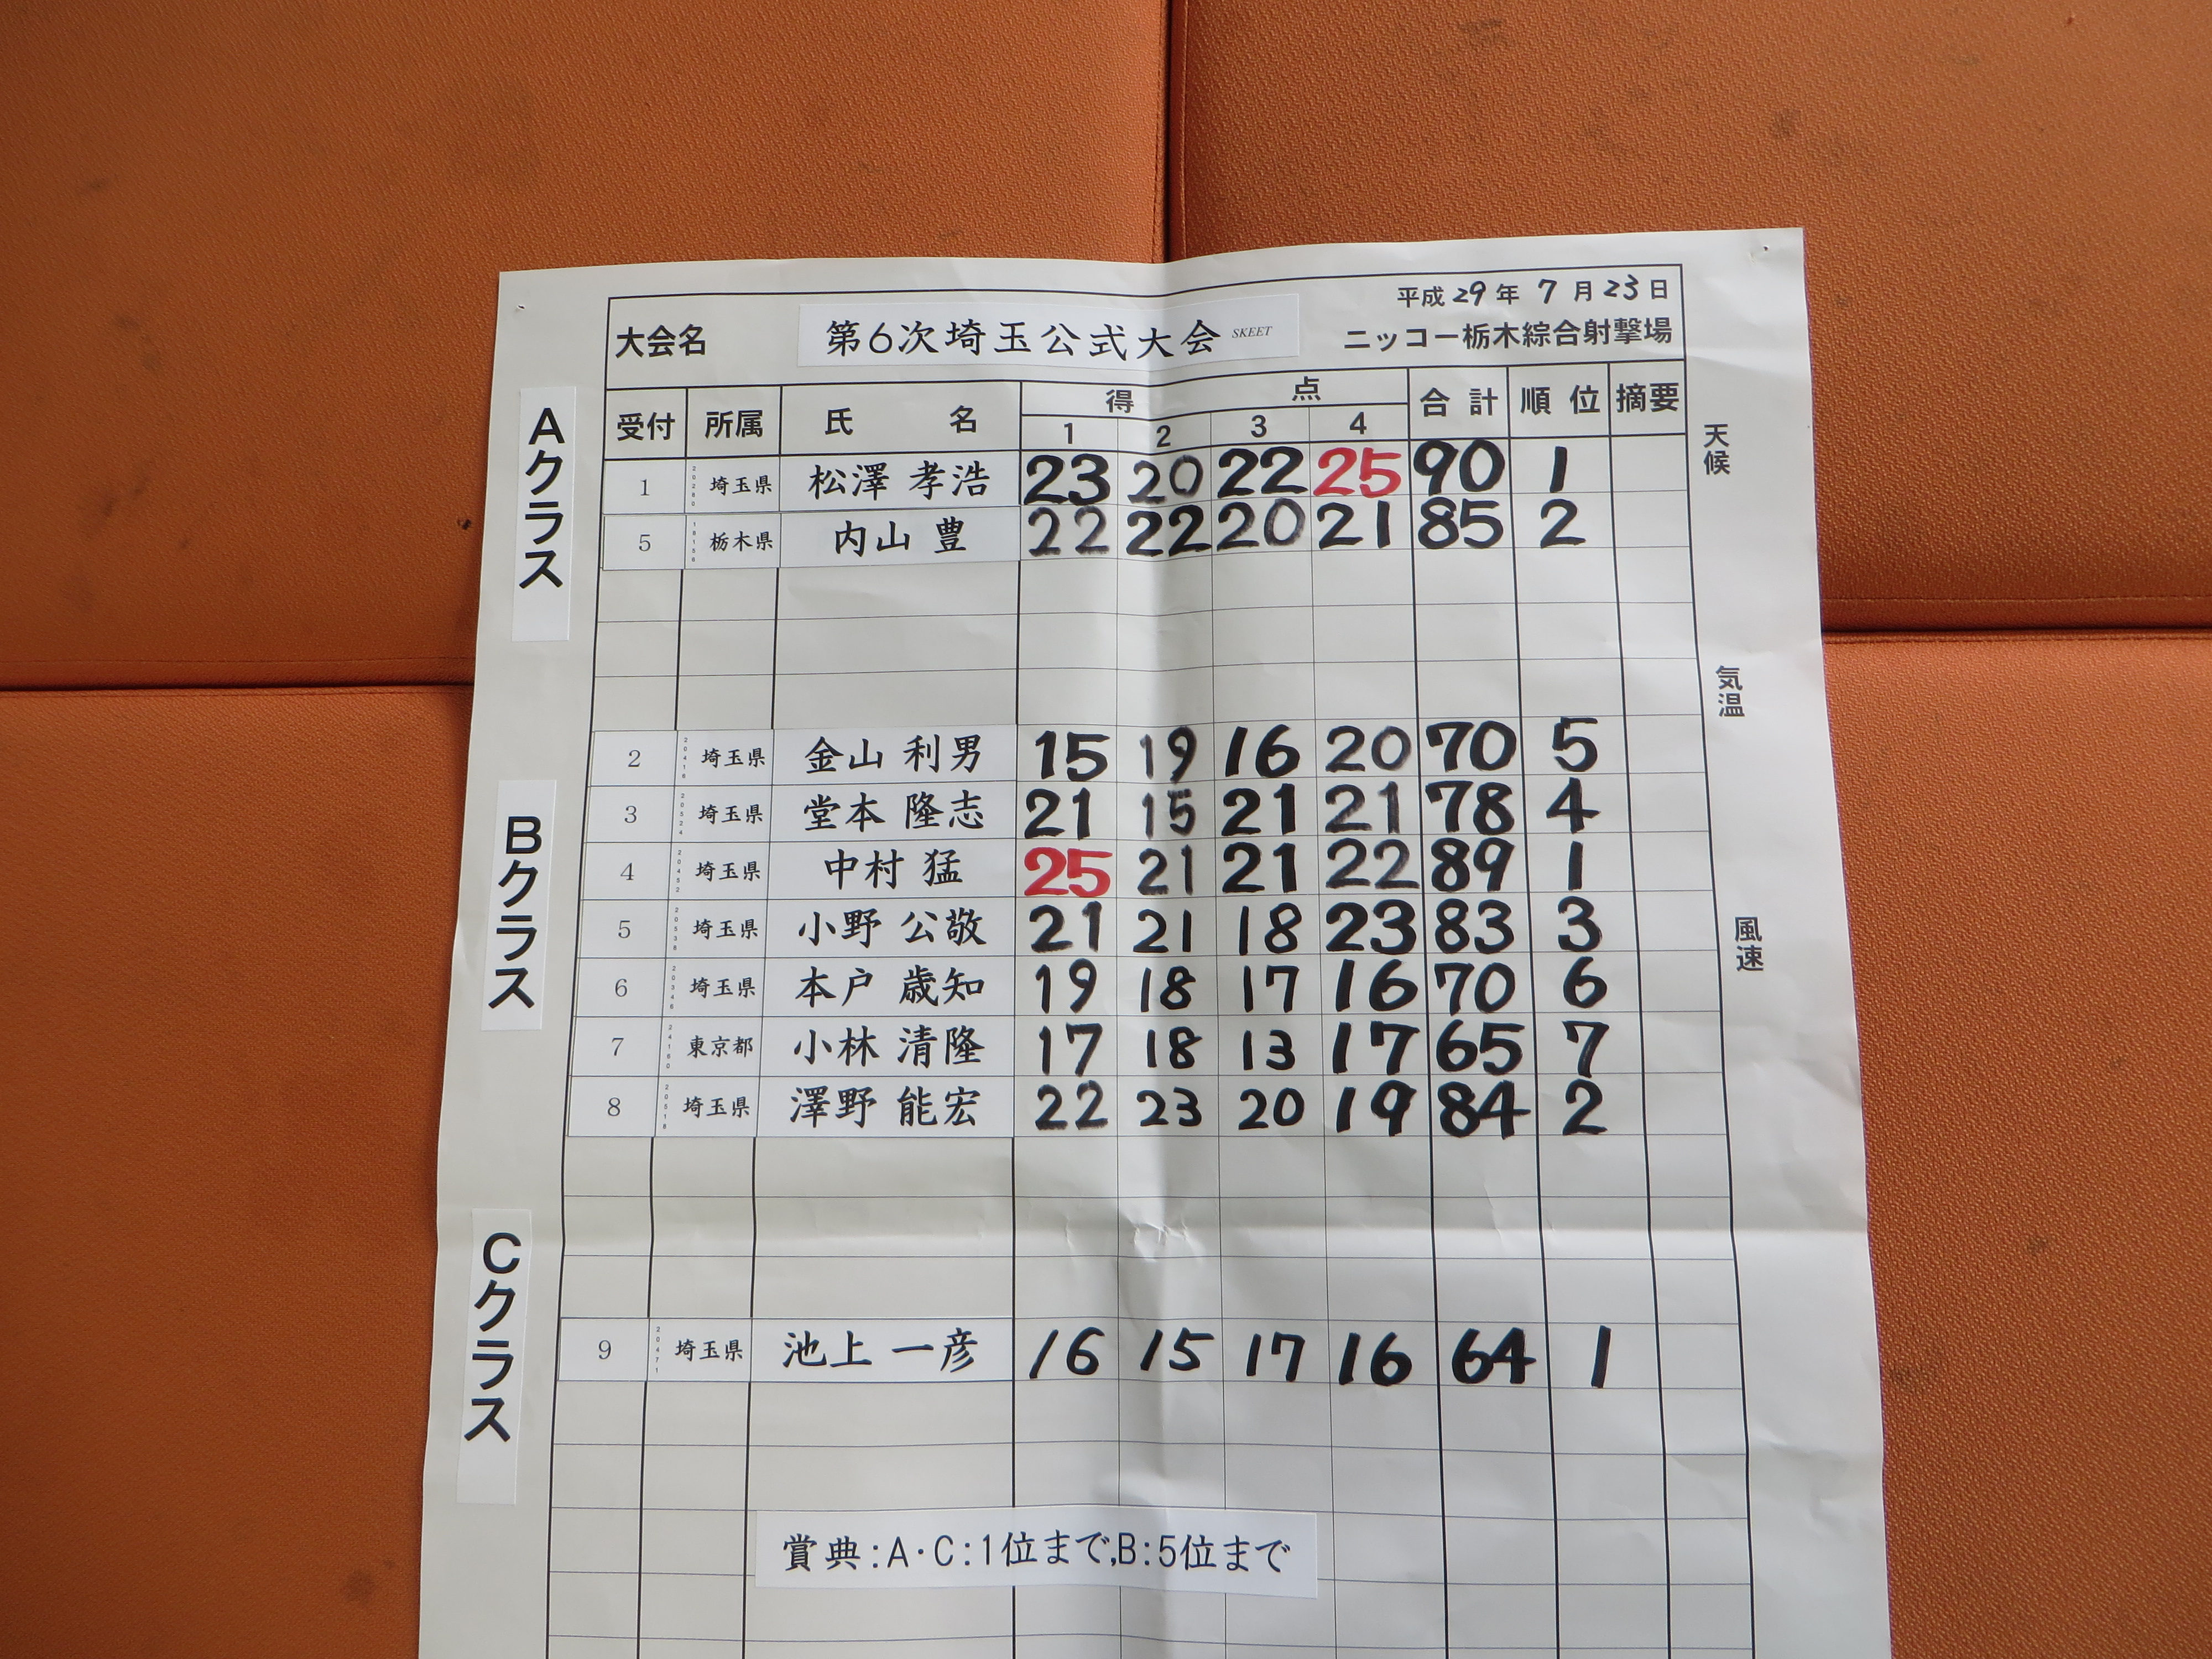 平成29年7月23日
大会名 第6次埼玉公式大会 SKEET ニッコー栃木綜合射撃場
受付 所属 氏名 得点 合計 順位 摘要
1 2 3 4
Aクラス
1 埼玉県 松澤 孝浩 23 20 22 25 90 1
5 栃木県 内山 豊 22 22 20 21 85 2
天候
気温
Bクラス
2 埼玉県 金山 利男 15 19 16 20 70 5
3 埼玉県 堂本 隆志 21 15 21 21 78 4
4 埼玉県 中村 猛 25 21 21 22 89 1
5 埼玉県 小野 公敬 21 21 18 23 83 3
風速
6 埼玉県 本戸 歳知 19 18 17 16 70 6
7 東京都 小林 清隆 17 18 13 17 65 7
8 埼玉県 澤野 能宏 22 23 20 19 84 2
Cクラス
9 埼玉県 池上 一彦 16 15 17 16 64 1
賞典:A・C:1位まで,B:5位まで